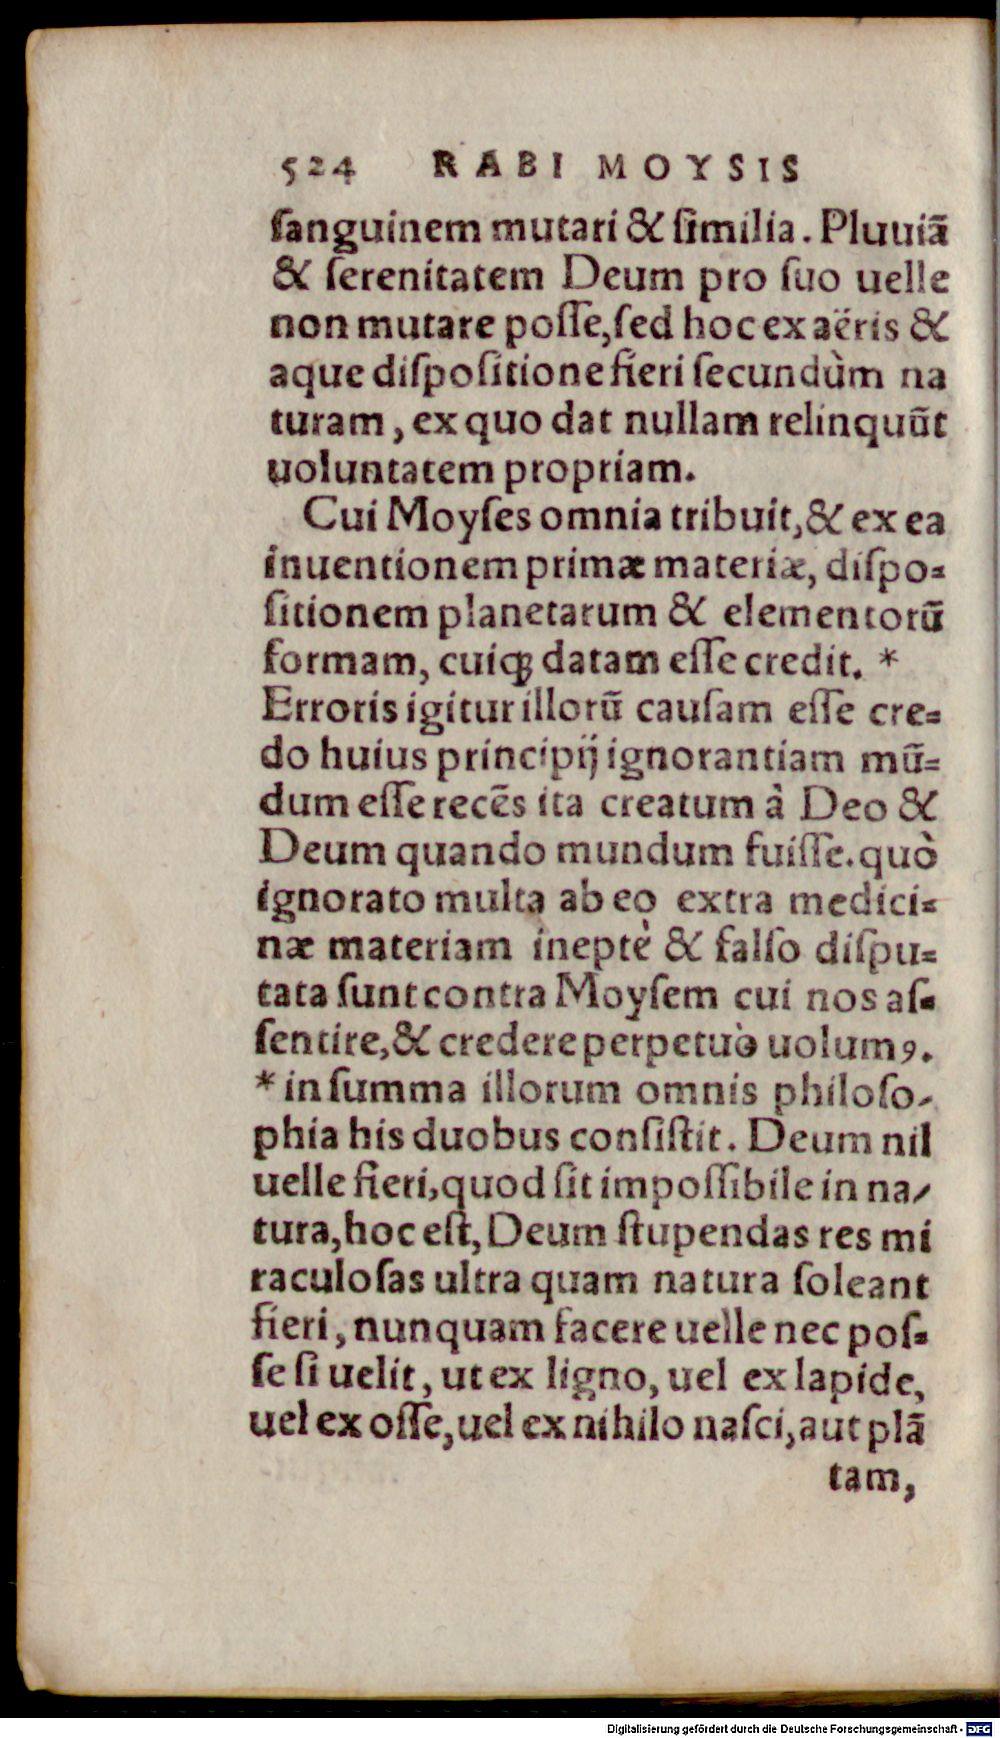 524 RABI MOYSIS
ſanguinem mutari & ſimilia. Pluuiā
& ſerenitatem Deum pro ſuo uelle
non mutare poſſe, ſed hoc ex aëris &
aque diſpoſitione fieri ſecundùm na
turam, ex quo dat nullam relinquūt
uoluntatem propriam.
Cui Moyſes omnia tribuit, & ex ea
inuentionem primæ materiæ, diſpo=
ſitionem planetarum & elementorū
formam, cuiqꝫ datam eſſe credit. *
Erroris igitur illorū cauſam eſſe cre=
do huius principij ignorantiam mū=
dum eſſe recēs ita creatum à Deo &
Deum quando mundum fuiſſe. quò
ignorato multa ab eo extra medici=
næ materiam ineptè & falſo diſpu=
tata ſunt contra Moyſem cui nos aſ=
ſentire, & credere perpetuò uolumꝰ.
* in ſumma illorum omnis philoſo-
phia his duobus conſiſtit. Deum nil
uelle fieri, quod ſit impoſſibile in na-
tura, hoc eſt, Deum ſtupendas res mi
raculoſas ultra quam natura ſoleant
fieri, nunquam facere uelle nec poſ=
ſe ſi uelit, ut ex ligno, uel ex lapide,
uel ex oſſe, uel ex nihilo naſci, aut plā
tam,
Digitalisierung gefördert durch die Deutsche Forschungsgemeinschaft - DFG